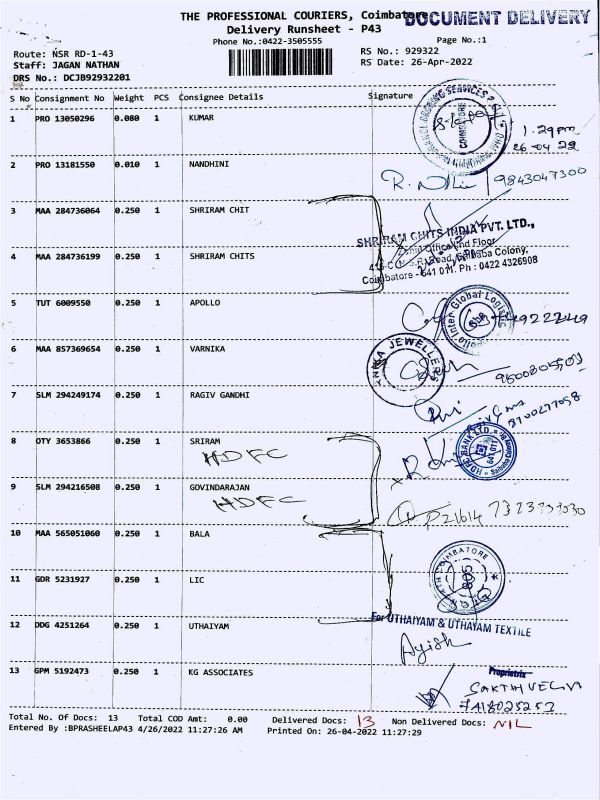 THE PROFESSIONAL COURIERS, Coimbatore
DOCUMENT DELIVERY
Delivery Runsheet - P43
Phone No.:0422-3505555
Page No.:1
Route: NSR RD-1-43
RS No.: 929322
Staff: JAGAN NATHAN
RS Date: 26-Apr-2022
DRS No.: DCJB92932201
S No Consignment No Weight PCS Consignee Details Signature
1 PRO 13050296 0.080 1 KUMAR
COIMBATORE
1.29pm
26.04.22
2 PRO 13181550 0.010 1 NANDHINI
9843047300
3 MAA 284736064 0.250 1 SHRIRAM CHIT
SHRIRAM CHITS INDIA PVT. LTD.,
4 MAA 284736199 0.250 1 SHRIRAM CHITS
Coimbatore - 641 011. Ph : 0422 4326908
5 TUT 6009550 0.250 1 APOLLO
Apollo Inter Global Logistic
6 MAA 857369654 0.250 1 VARNIKA
JEWELLERS
7 SLM 294249174 0.250 1 RAGIV GANDHI
8 OTY 3653866 0.250 1 SRIRAM
HDFC
HDFC BANK LTD.
9 SLM 294216508 0.250 1 GOVINDARAJAN
HDFC
P21614
10 MAA 565051060 0.250 1 BALA
11 GDR 5231927 0.250 1 LIC
COIMBATORE
12 DDG 4251264 0.250 1 UTHAIYAM
For UTHAIYAM & UTHAYAM TEXTILE
Ayish
13 GPM 5192473 0.250 1 KG ASSOCIATES
Proprietrix
SAKTHIVELN
7418025257
Total No. Of Docs: 13 Total COD Amt: 0.00 Delivered Docs: 13 Non Delivered Docs: NIL
Entered By :BPRASHEELAP43 4/26/2022 11:27:26 AM Printed On: 26-04-2022 11:27:29